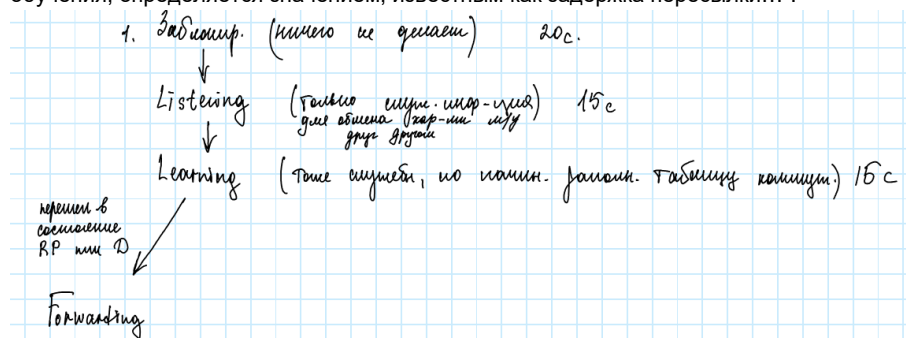 обучения, определяется значением, известным как задержка пересылки... .
1. Заблокир. (ничего не делает) 20с.
Listening (только служ. инфор-ция) 15с
для обмена хар-ми м/у
друг другом
Learning (тоже служебн, но начин. заполн. таблицу коммут.) 15с
перешел в
состояние
RP или D
Forwarding